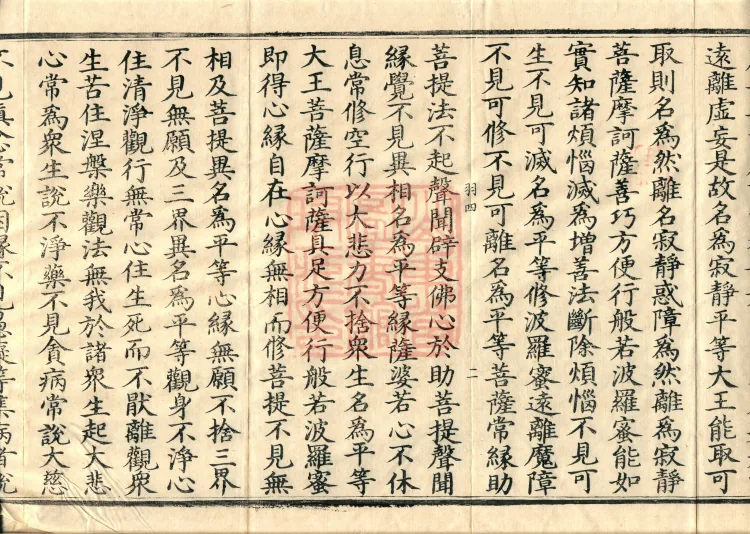 遠離虛妄是故名為寂靜平等大王能取可
取則名為然離名寂靜惑障為然離為寂靜
菩薩摩訶薩善巧方便行般若波羅蜜能如
實知諸煩惱滅為增善法斷除煩惱不見可
生不見可滅名為平等修波羅蜜遠離魔障
不見可修不見可離名為平等菩薩常緣助
羽四 二
菩提法不起聲聞辟支佛心於助菩提聲聞
緣覺不見異相名為平等緣薩婆若心不休
息常修空行以大悲力不捨眾生名為平等
大王菩薩摩訶薩具足方便行般若波羅蜜
即得心緣自在心緣無相而修菩提不見無
相及菩提異名為平等心緣無願不捨三界
不見無願及三界異名為平等觀身不淨心
住清淨觀行無常心住生死而不猒離觀衆
生苦住涅槃樂觀法無我於諸衆生起大悲
心常為衆生說不淨藥不見貪病常說大慈